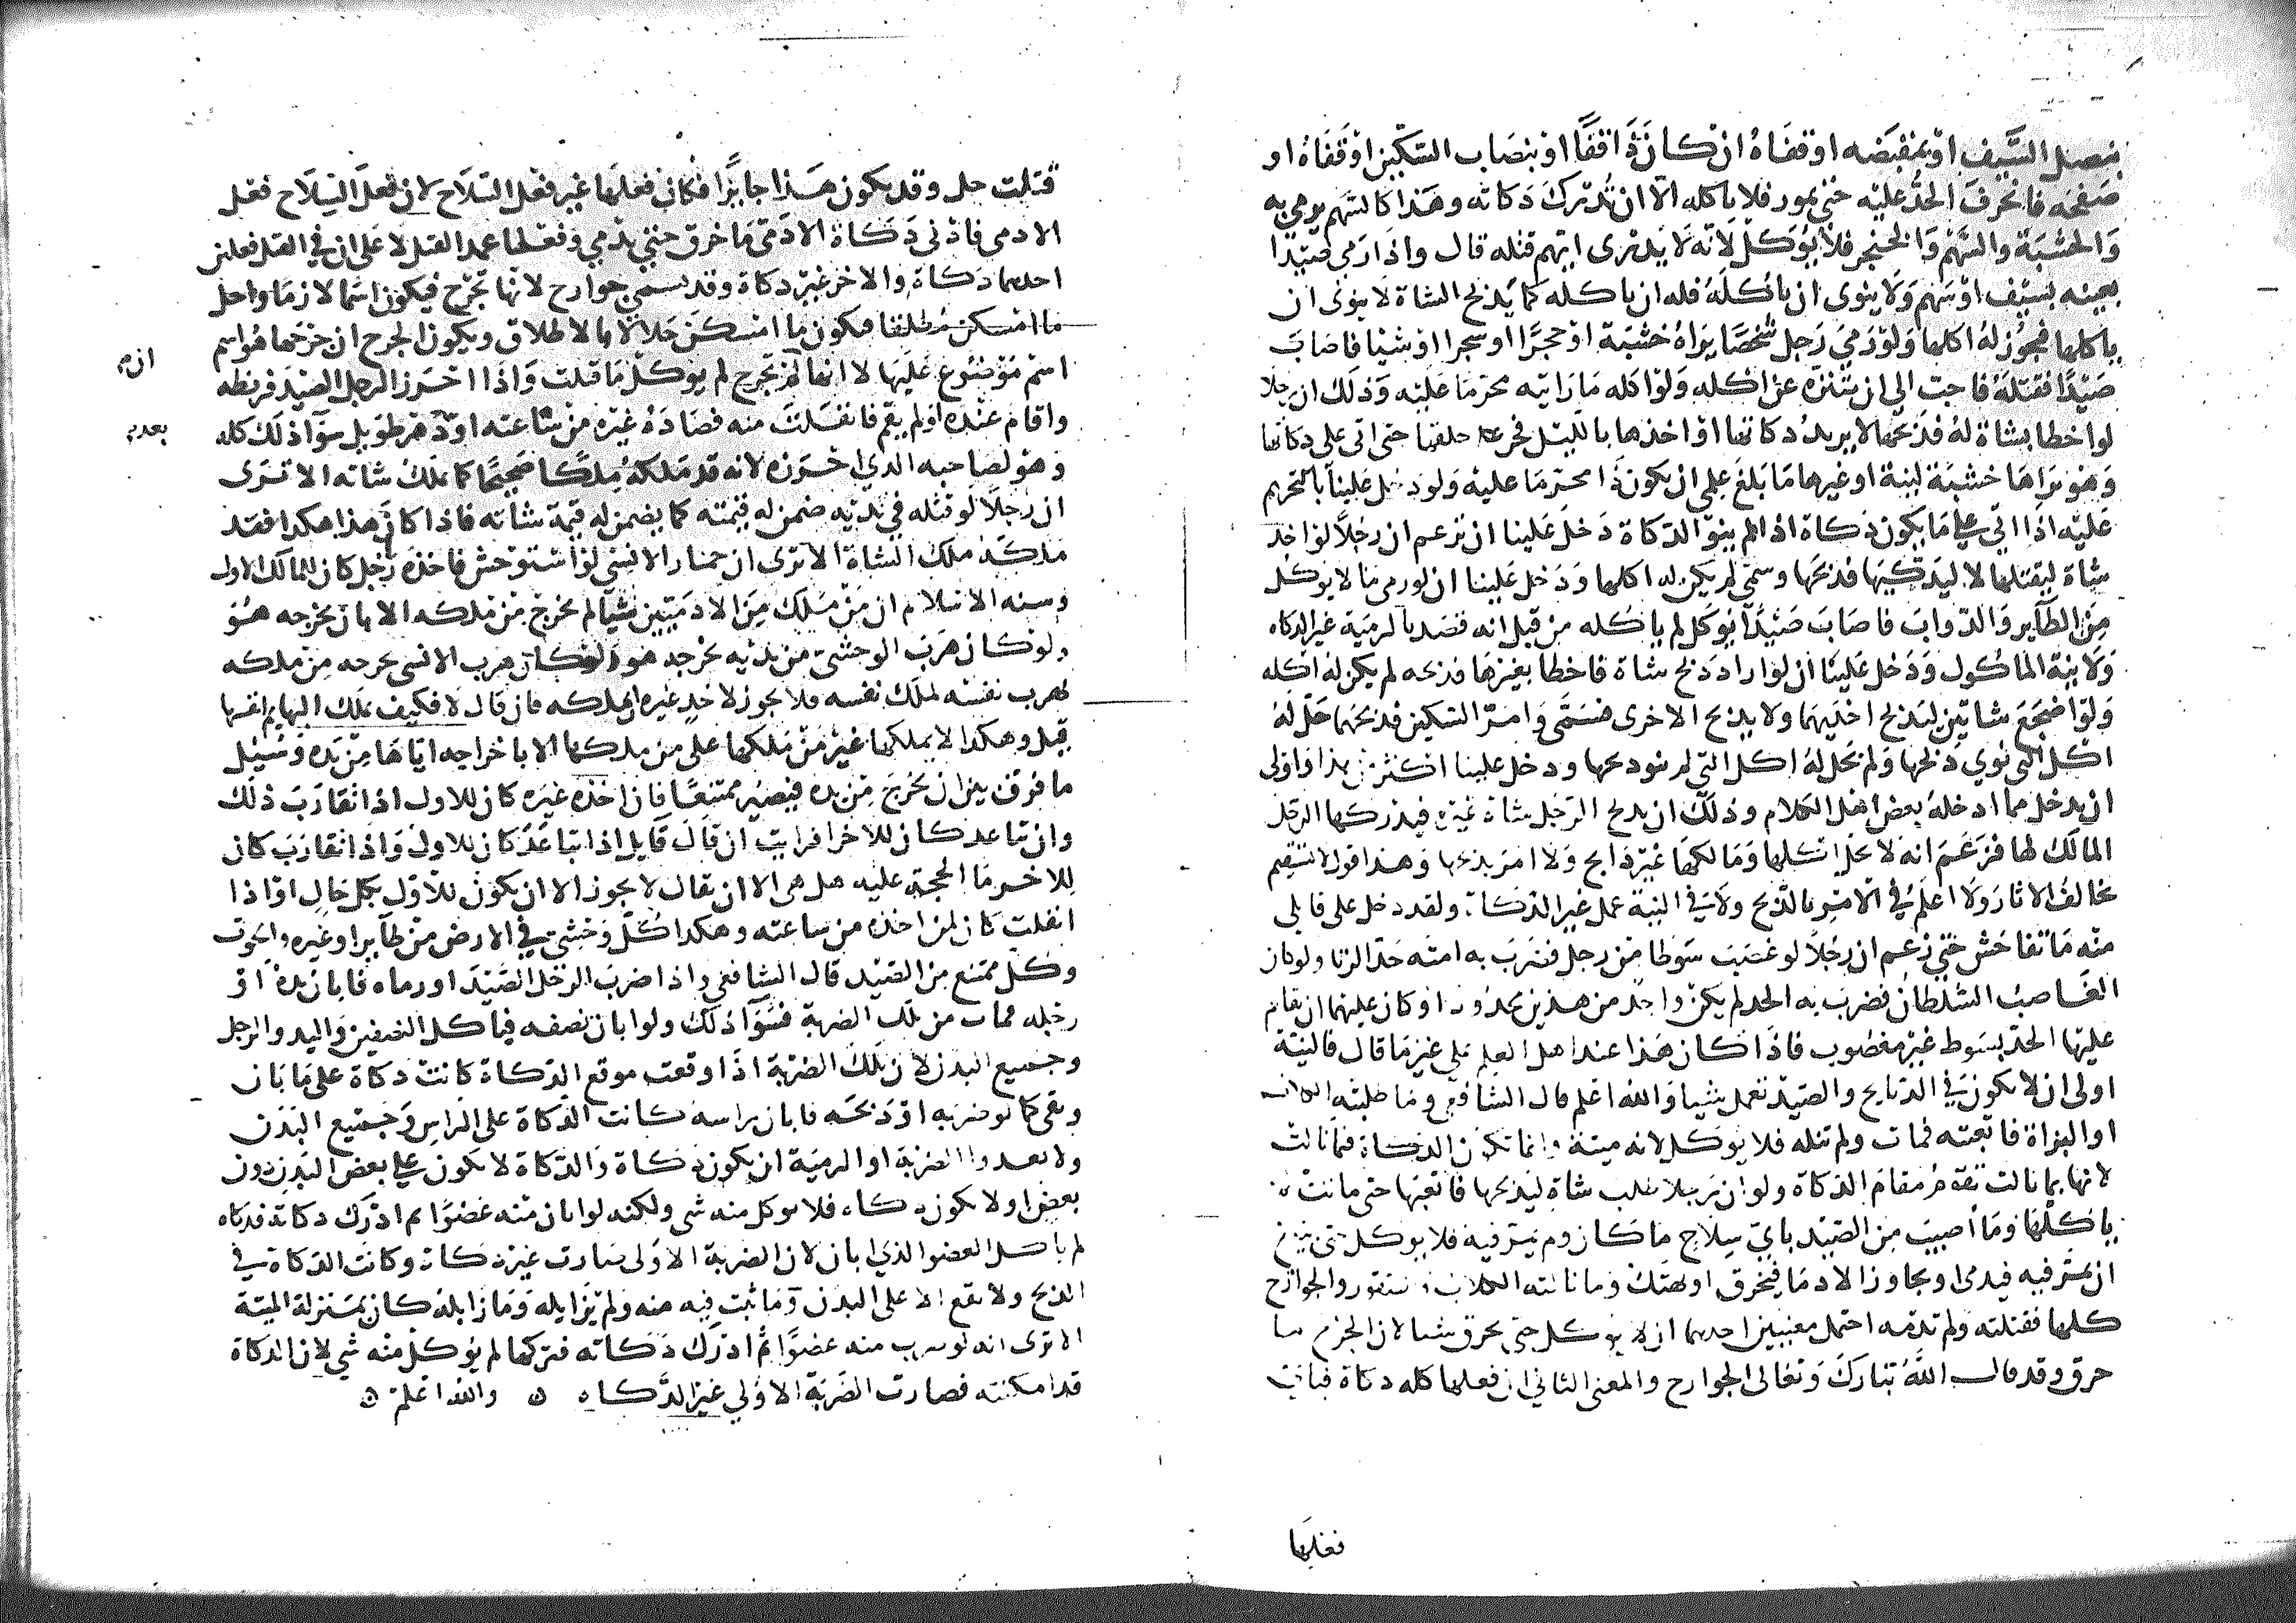 بنصل السيف او بمقبضه او قفاه ان كان ذا قفا او بنصاب السكين او قفاه او
صفحه فانحرف الحد عليه حتى يمور فلا ياكله الا ان تدرك ذكاته وهذا كالسهم يرمى به
والخشبة والسهم والخنجر فلا يؤكل لانه لا يدرى ايهم قتله قال واذا رمى صيدا
بعينه بسيف او سهم ولا ينوى ان ياكله فله ان ياكله كما يذبح الشاة لا ينوى ان
ياكلها فيجوز له اكلها ولو رمى رجل شخصا يراه خشبة او حجرا او شجرا او شيا فاصاب
صيدا فقتله فاحب الي ان يتنزه عن اكله ولو اكله ما رايته محرما عليه وذلك ان رجلا
لو اخطا بشاة له فذبحها لا يريد ذكاتها او اخذها بالليل فحز حلقها حتى اتى على ذكاتها
وهو يراها خشبة لينة او غيرها ما بلغ علمي ان يكون ذا محرما عليه ولو دخل علينا بالتحريم
عليه اذا اتى على ما يكون ذكاة اذا لم ينو الذكاة دخل علينا ان نزعم ان رجلا لو اخذ
شاة ليقتلها لا ليذكيها فذبحها وسمى لم يكن له اكلها ودخل علينا ان لو رمى ما لا يوكل
من الطاير والدواب فاصاب صيدا يوكل لم ياكله من قبل انه قصد بالرمية غير الذكاه
ولا نية الماكول ودخل علينا ان لو اراد ذبح شاة فاخطا بغيرها فذبحه لم يكن له اكله
ولو اضجع شاتين ليذبح احديهما ولا يذبح الاخرى فسمى وامر السكين فذبحهما حل له
اكل التى نوي ذبحها ولم تحل له اكل التي لم ينو ذبحها ودخل علينا اكثر من هذا واولى
ان يدخل مما ادخله بعض اهل الكلام وذلك ان يذبح الرجل شاة غيره فيدركها الرجل
المالك لها فزعم انه لا يحل اكلها ومالكها غير ذابح ولا امر بذبحها وهذا قول لا يستقيم
يخالف الاثار ولا اعلم في الامر بالذبح ولا في النية عمل غير الذكاة ولقد دخل على قايل
منه ما تفاحش حتى زعم ان رجلا لو غصب سوطا من رجل فضرب به امته حد الزنا ولو كان
الغاصب السلطان فضرب به الحد لم يكن واحد من هذين محدودا وكان عليهما ان يقام
عليها الحد بسوط غير مغصوب فاذا كان هذا عند اهل العلم على غير ما قال فالنية
اولى ان لا يكون في الذبايح والصيد تعمل شيا والله اعلم قال الشافعي وما طلبته الكلاب
او البزاة فاتعبته فمات ولم تنله فلا يوكل لانه ميتة وانما تكون الذكاة فيما نالت
لانها بما نالت تقوم مقام الذكاة ولو ان رجلا طلب شاة ليذبحها فاتعبها حتى ماتت لم
ياكلها وما اصيب من الصيد باي سلاح ما كان ولم يمر فيه فلا يوكل حتى يبلغ
ان يمر فيه فيدمى او يجاوز الادما فيخرق او يهتك وما نالته الكلاب والصقور والجوارح
كلها فقتلته ولم تدمه احتمل معنيين احدهما ان لا يوكل حتى يخرق شيا لان الجرح ما
خرق وقد قال الله تبارك وتعالى الجوارح والمعنى الثاني ان فعلها كله ذكاة فباي
فعلها
قتلت حل وقد يكون هذا جايزا فكان فعلها غير فعل السلاح لان فعل السلاح فعل
الادمى فادنى ذكاة الادمى ما خرق حتى يدمي وفعلها عمد القتل لا على ان في القتل فعلين
احدهما ذكاة والاخر غير ذكاة وقد تسمى جوارح لانها تجرح فيكون اسما لازما واحل
ما امسكن مطلقا فيكون ما امسكن حلالا بالاطلاق ويكون الجرح ان جرحها هو اسم
ان م
اسم موضوع عليها لا انها لم تجرح لم يوكل ما قتلت واذا احرز الرجل الصيد فربطه
واقام عنده او لم يقم فانفلت منه فصاده غيره من ساعته او دهر طويل سوا ذلك كله
بعد م
وهو لصاحبه الذي احرزه لانه قد ملكه ملكا صحيحا كما يملك شاته الا ترى
ان رجلا لو قتله في يديه ضمن له قيمته كما يضمن له قيمة شاته فاذا كان هذا هكذا فقد
ملكه ملك الشاة الا ترى ان حمار الانسى لو استوحش فاخذه رجل كان للمالك الاول
وسنه الاسلام ان من ملك من الادميين شيا لم يخرج من ملكه الا بان يخرجه هو
ولو كان هرب الوحشى من يديه يخرجه هو ولو كان هرب الانسى يخرجه من ملكه
لهرب نفسه لملك نفسه فلا يجوز لاحد غيره ان يملكه فان قال لا فكيف تملك البهايم انفسها
قيل وهكذا لا يملكها غير من ملكها على من ملكها الا باخراجه اياها من يده وسئل
ما فرق بين ان يخرج من يده فيصير ممتنعا فان اخذه غيره كان للاول اذا تقارب ذلك
وان تباعد كان للاخر افرايت ان قال قايل اذا تباعد كان للاول واذا تقارب كان
للاخر ما الحجة عليه هل هى الا ان يقال لا يجوز الا ان يكون للاول بكل حال او اذا
انفلت كان لمن اخذه من ساعته وهكذا كل وحشي في الارض من طاير او غيره والحوت
وكل ممتنع من الصيد قال الشافعي واذا ضرب الرجل الصيد او رماه فابان يده او
رجله فمات من تلك الضربة فسوا ذلك ولو ابان نصفه فياكل النصفين واليد والرجل
وجميع البدن لان تلك الضربة اذا وقعت موقع الذكاة كانت ذكاة على ما بان
وبقى كما لو ضربه او ذبحه فابان راسه كانت الذكاة على الراس وجميع البدن
ولا تعدوا الضربة او الرمية ان يكون ذكاة والذكاة لا تكون على بعض البدن دون
بعض او لا تكون ذكاه فلا يوكل منه شي ولكنه لو ابان منه عضوا ثم ادرك ذكاته فذكاه
لم ياكل العضو الذي ابان لان الضربة الاولى صارت غير ذكاة وكانت الذكاة في
الذبح ولا تقع الا على البدن وما ثبت فيه منه ولم يزايله وما زايله كان بمنزلة الميتة
الا ترى انه لو ضرب منه عضوا ثم ادرك ذكاته فتركها لم يؤكل منه شي لان الذكاة
قد امكنته فصارت الضربة الاولي غير الذكاه ه والله اعلم ه